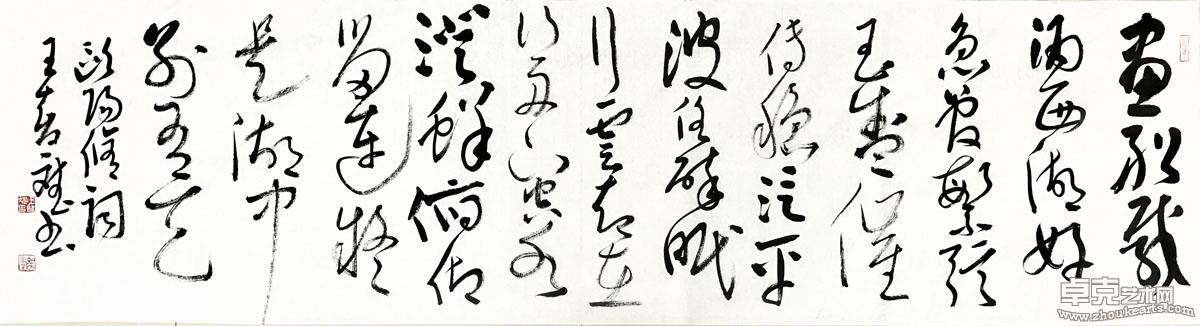 畫船載
酒西湖好
急管繁弦
玉盞催
傳穩泛平
波任醉眠
行雲却在
行舟下空水
澄鮮俯仰
留連疑
是湖中
别有天
歐陽脩詞
王春书
卓克艺术网
www.zhoukearts.com